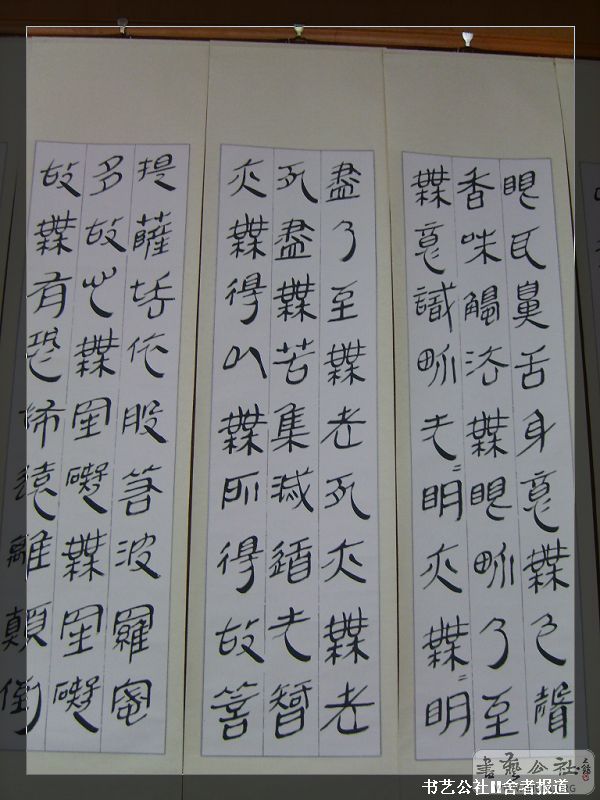 眼耳鼻舌身意無色聲
香味觸法無眼界乃至
無意識界无〻明亦無〻明
盡乃至無老死亦無老
死盡無苦集滅道无智
亦無得以無所得故菩
提薩埵依般若波羅蜜
多故心無罣礙無罣礙
故無有恐怖遠離顛倒
書藝公社
书艺公社II舍者报道